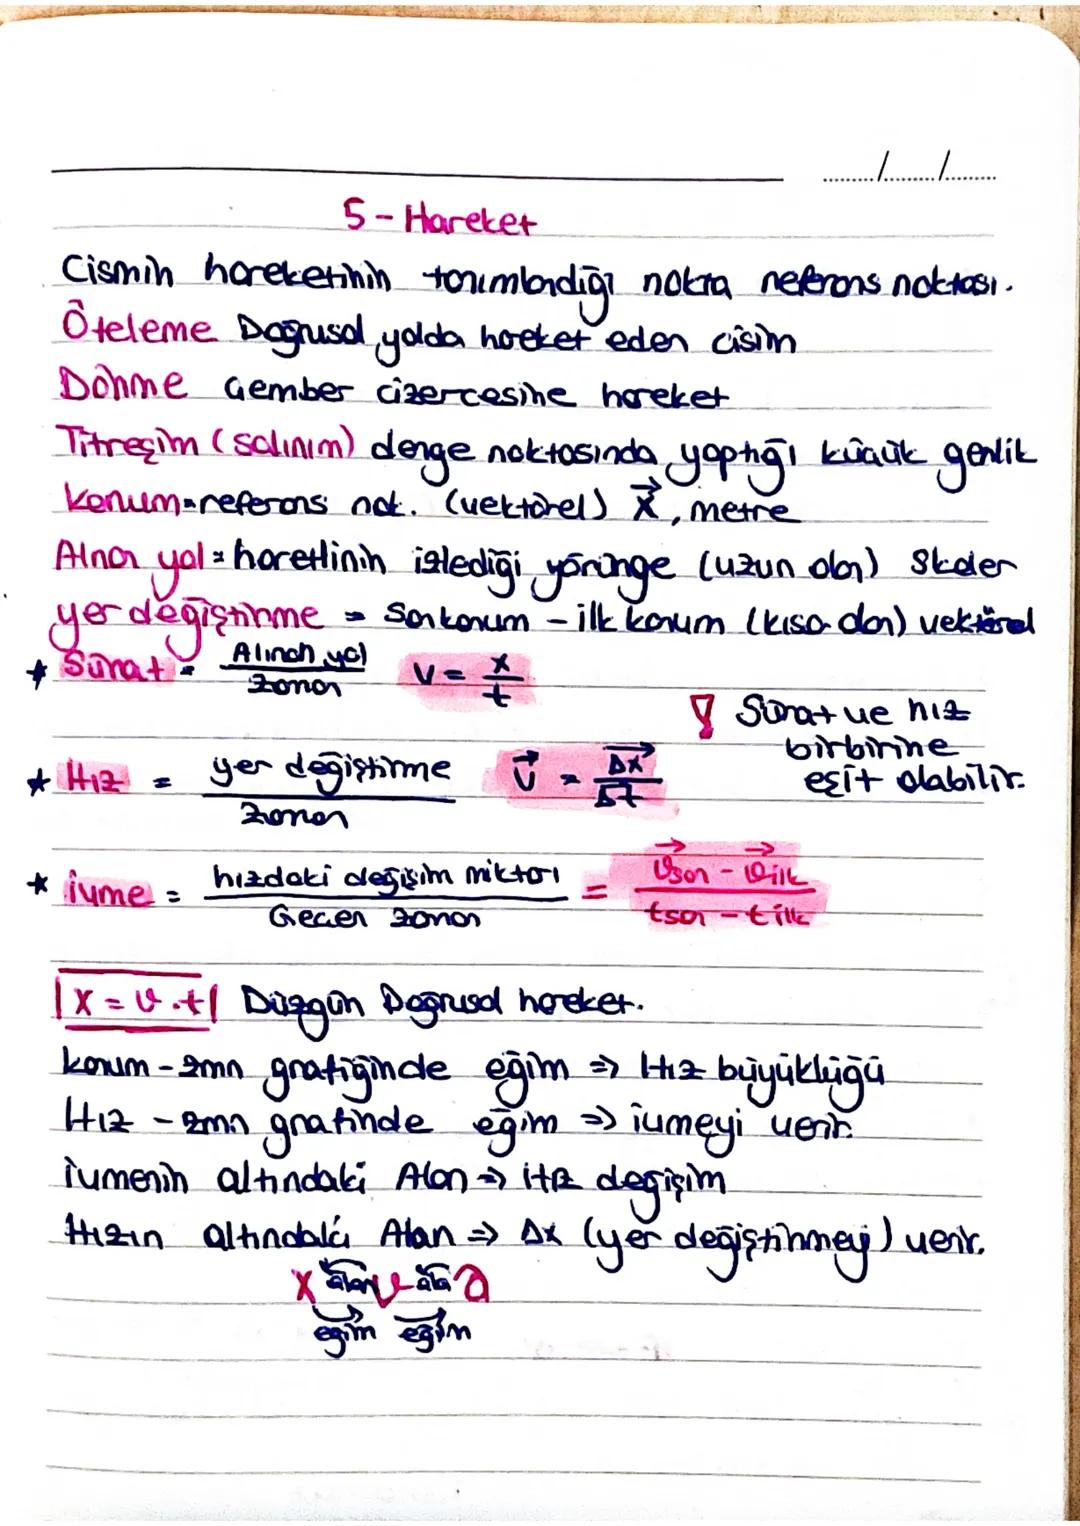 5 - Hareket
Cismin hareketinin tanımlandığı nokta referans noktası.
Öteleme Doğrusal yolda hareket eden cisim
Dönme Çember cizercesine hareket
Titreşim (salınım) denge noktasında yaptığı küçük genlik
Konum = referans nok. (vektörel) x⃗, metre
Alınan yol = haretlinin izlediği yörünge (uzun olan) Skaler
yer değiştirme = Son konum - ilk konum (kısa olan) vektörel
* Sürat = Alınan yol / zaman V = x / t
! Sürat ve hız
birbirine
eşit olabilir.
* Hız = yer değiştirme / zaman v⃗ = Δx⃗ / Δt
* ivme = hızdaki değişim miktarı / Gecen zaman = v⃗son - v⃗ilk / tson - tilk
|x = v.t| Düzgün Doğrusal hareket.
konum - zmn grafiğinde eğim => Hız büyüklüğü
Hız - zmn grafinde eğim => ivmeyi verir.
ivmenin altındaki Alan => Hız değişim
Hızın altındaki Alan => Δx (yer değiştirmeyi) verir.
x alan v ala a
eğim eğim